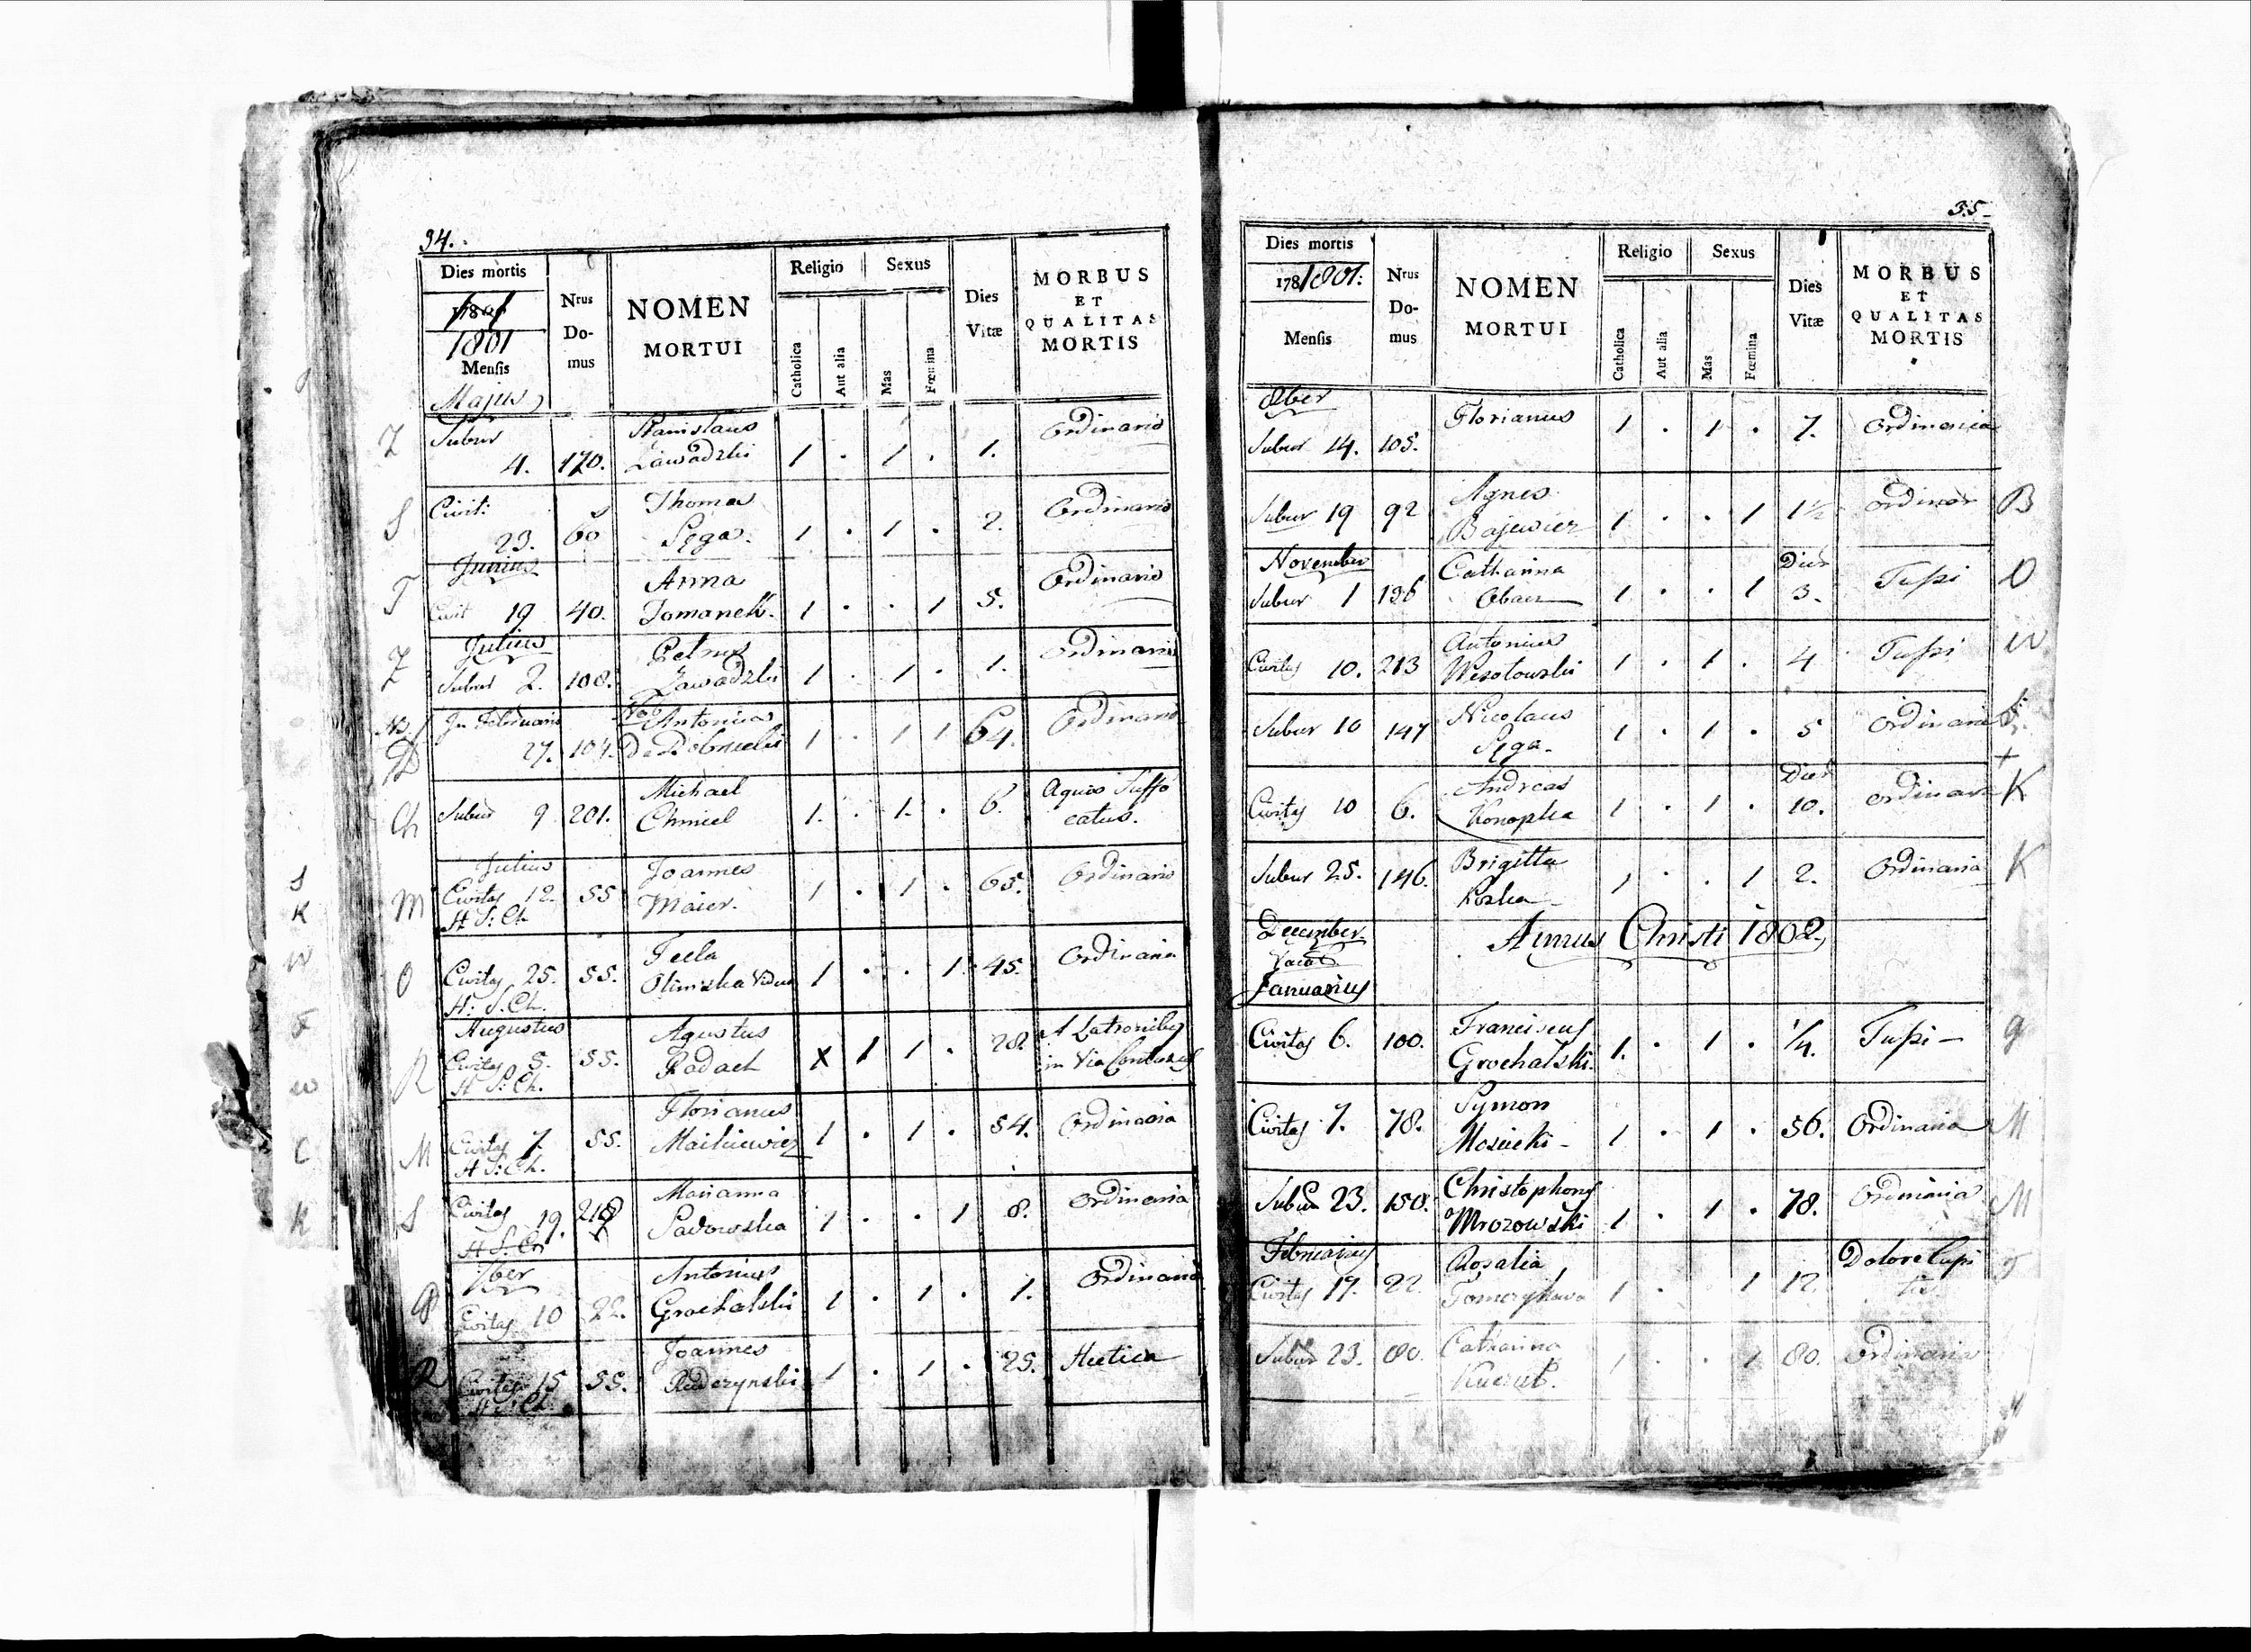 34.
Dies mortis
1801
Mensis
Majus
Nrus Do-mus
NOMEN MORTUI
Religio
Catholica
Aut alia
Sexus
Mas
Fœmina
Dies Vitæ
MORBUS ET QUALITAS MORTIS
Z Subur 4. 170. Stanislaus Zawadzki 1 . 1 . 1. Ordinaria
S Civit: 23. 60 Thomas Sęga. 1 . 1 . 2. Ordinaria
Junius
T Civit 19 40. Anna Tomanek. 1 . . 1 5. Ordinaria
Julius
Z Subur 2. 108. Petrus Zawadzki 1 . 1 . 1. Ordinaria
In Februario 27. 104. Antonius 1 . 1 1 64. Ordinaria
D
Ch Subur 9 201. Michael Chmiel 1. . 1. . 6. Aquis Suffocatus.
Julius
M Civitas 12. 55 Joannes Maier. 1 . 1 . 65. Ordinaria
H S: Ch
O Civitas 25. 55. Tecla Olinska Vidua 1 . . 1. 45. Ordinaria
H: S. Ch.
Augustus
R Civitas 5. 55. Agustus Radach X 1 1 . 28. A Latronibus in Via
H S: Ch.
M Civitas 7. 55. Florianus 1 . 1 . 54. Ordinaria
H S: Ch.
S Civitas 19. Marianna Sadowska 1 . . 1 8. Ordinaria
H S. Ch
7ber
G Civitas 10 22. Antonius Grochalski 1 . 1 . 1. Ordinaria
R Civitas 15 55. Joannes Rudczynski 1 . 1 . 25. Hectica
H S: Ch.
35
Dies mortis
1781801.
Mensis
Nrus Do-mus
NOMEN MORTUI
Religio
Catholica
Aut alia
Sexus
Mas
Fœmina
Dies Vitæ
MORBUS ET QUALITAS MORTIS
8ber
Subur 14. 105. Florianus 1 . 1 . 7. Ordinaria
Subur 19 92 Agnes Bajewicz 1 . . 1 1½ Ordinar B
November
Subur 1 136 Catharina 1 . . 1 Dies 3. Tussi O
Civitas 10. 213 Antonius Wesołowski 1 . 1 . 4 Tussi W
Subur 10 147 Nicolaus Sęga. 1 . 1 . 5 Ordinaria S.
Civitas 10 6. Andreas Konopka 1 . 1 . Dies 10. Ordinaria K
Subur 25. 146. Brigitta Koska 1 . . 1 2. Ordinaria K
December
Vacat
Annus Christi 1802
Januarius
Civitas 6. 100. Franciscus Grochalski. 1. . 1 . ¼. Tussi G
Civitas 7. 78. Symon Mosucki 1 . 1 . 56. Ordinaria M
Subur 23. 150. Christophorus Mrozowski 1 . 1 . 78. Ordinaria M
Februarius
Civitas 17. 22. Rosalia 1 . 1 12. Dolore Capitis T
Subur 23. 80. Catharina 1 . . 1 80. Ordinaria